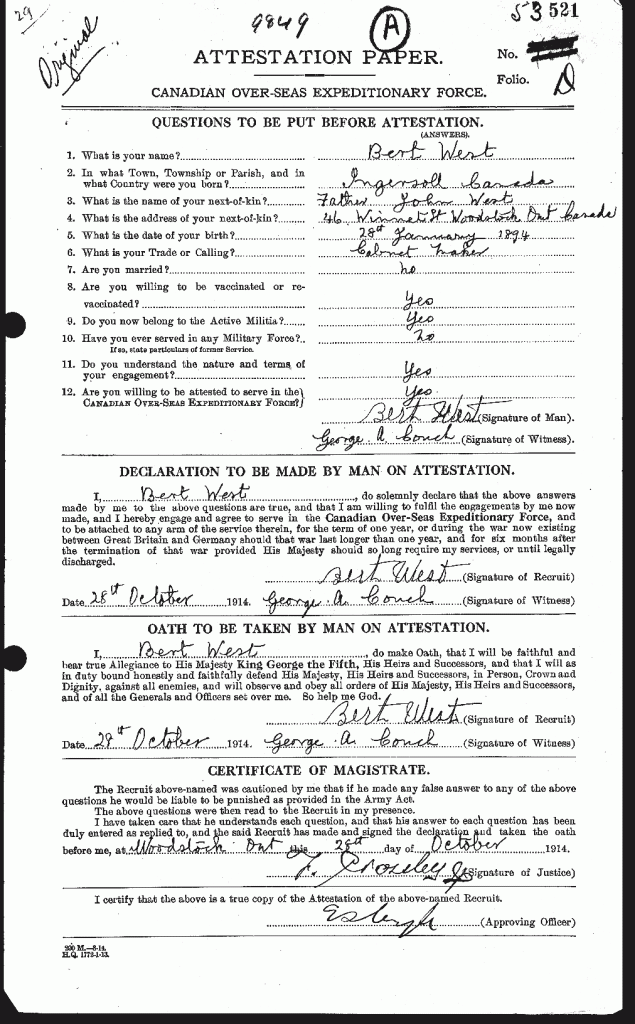 29
Original
9849
A
53 521
ATTESTATION PAPER.
No.
Folio.
D
CANADIAN OVER-SEAS EXPEDITIONARY FORCE.
QUESTIONS TO BE PUT BEFORE ATTESTATION.
(ANSWERS).
1. What is your name? Bert West
2. In what Town, Township or Parish, and in
what Country were you born? Ingersoll Canada
3. What is the name of your next-of-kin? Father John West
4. What is the address of your next-of-kin? 46 Winnett St Woodstock Ont Canada
5. What is the date of your birth? 28th January 1894
6. What is your Trade or Calling? Cabinet maker
7. Are you married? no
8. Are you willing to be vaccinated or re-
vaccinated? Yes
9. Do you now belong to the Active Militia? Yes
10. Have you ever served in any Military Force? no
If so, state particulars of former Service.
11. Do you understand the nature and terms of
your engagement? Yes
12. Are you willing to be attested to serve in the Yes
CANADIAN OVER-SEAS EXPEDITIONARY FORCE?
Bert West (Signature of Man).
George A. Couch (Signature of Witness).
DECLARATION TO BE MADE BY MAN ON ATTESTATION.
I, Bert West, do solemnly declare that the above answers
made by me to the above questions are true, and that I am willing to fulfil the engagements by me now
made, and I hereby engage and agree to serve in the Canadian Over-Seas Expeditionary Force, and
to be attached to any arm of the service therein, for the term of one year, or during the war now existing
between Great Britain and Germany should that war last longer than one year, and for six months after
the termination of that war provided His Majesty should so long require my services, or until legally
discharged.
Bert West (Signature of Recruit)
Date 28th October 1914. George A. Couch (Signature of Witness)
OATH TO BE TAKEN BY MAN ON ATTESTATION.
I, Bert West, do make Oath, that I will be faithful and
bear true Allegiance to His Majesty King George the Fifth, His Heirs and Successors, and that I will as
in duty bound honestly and faithfully defend His Majesty, His Heirs and Successors, in Person, Crown and
Dignity, against all enemies, and will observe and obey all orders of His Majesty, His Heirs and Successors,
and of all the Generals and Officers set over me. So help me God.
Bert West (Signature of Recruit)
Date 28th October 1914. George A. Couch (Signature of Witness)
CERTIFICATE OF MAGISTRATE.
The Recruit above-named was cautioned by me that if he made any false answer to any of the above
questions he would be liable to be punished as provided in the Army Act.
The above questions were then read to the Recruit in my presence.
I have taken care that he understands each question, and that his answer to each question has been
duly entered as replied to, and the said Recruit has made and signed the declaration and taken the oath
before me, at Woodstock Ont this 28th day of October 1914.
(Signature of Justice)
I certify that the above is a true copy of the Attestation of the above-named Recruit.
(Approving Officer)
200 M.—8-14.
H.Q. 1772-1-13.